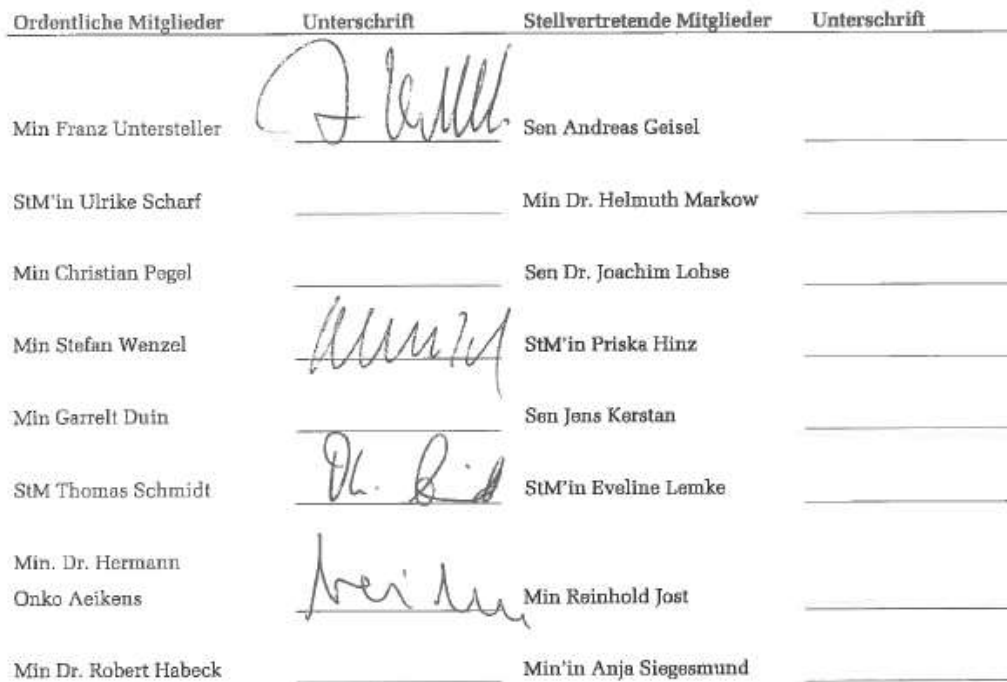 Ordentliche Mitglieder Unterschrift Stellvertretende Mitglieder Unterschrift
Min Franz Untersteller Sen Andreas Geisel
StM'in Ulrike Scharf Min Dr. Helmuth Markow
Min Christian Pegel Sen Dr. Joachim Lohse
Min Stefan Wenzel StM'in Priska Hinz
Min Garrelt Duin Sen Jens Kerstan
StM Thomas Schmidt StM'in Eveline Lemke
Min. Dr. Hermann
Onko Aeikens Min Reinhold Jost
Min Dr. Robert Habeck Min'in Anja Siegesmund